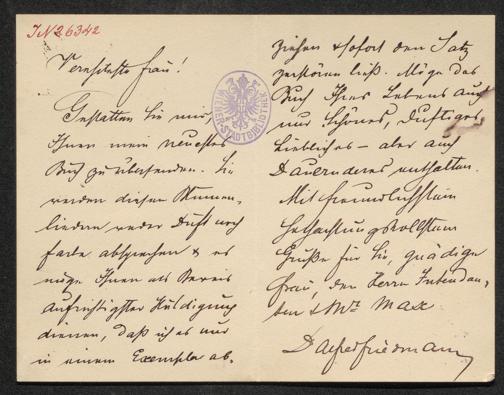 I.N. 26342
Verehrteste Frau!
Gestatten Sie mir,
Ihnen mein neuestes
Buch zu übersenden. Sie
werden diesen Blumen-
liedern weder Duft noch
Farbe absprechen & es
möge Ihnen als Beweis
aufrichtigster Huldigung
dienen, daß ich es nur
in einem Exemplar ab-
WIENER STADTBIBLIOTHEK
ziehen & sofort den Satz
zerstören ließ. Möge das
Buch Ihres Lebens auch
nur Schönes, Duftiges,
Liebliches – aber auch
Dauerndes enthalten.
Mit freundlichsten
hochachtungsvollsten
Grüßen für Sie, gnädige
Frau, den Herrn Intendan-
ten & Mr. Max
Dr Alfred Friedmann